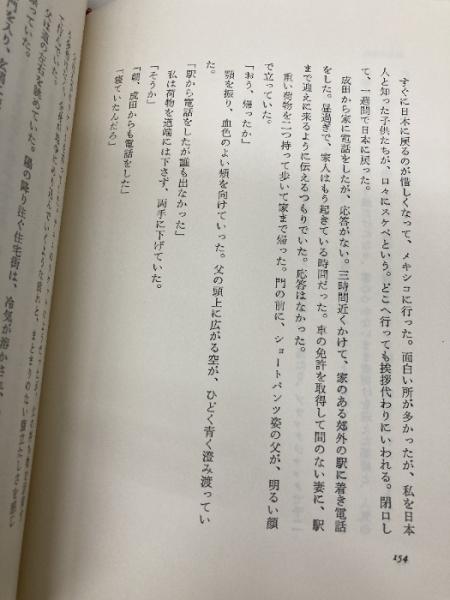 すぐに日本に戻るのが惜しくなって、メキシコに行った。面白い所が多かったが、私を日本
人と知った子供たちが、口々にスケベという。どこへ行っても挨拶代わりにいわれる。閉口し
て、一週間で日本に戻った。
成田から家に電話をしたが、応答がない。三時間近くかけて、家のある郊外の駅に着き電話
をした。昼過ぎで、家人はもう起きている時間だった。車の免許を取得して間のない妻に、駅
まで迎えに来るように伝えるつもりでいた。応答はなかった。
重い荷物を二つ持って歩いて家まで帰った。門の前に、ショートパンツ姿の父が、明るい顔
で立っていた。
「おう、帰ったか」
顎を振り、血色のよい頬を向けていった。父の頭上に広がる空が、ひどく青く澄み渡ってい
た。
「駅から電話をしたが誰も出なかった」
私は荷物を道端には下さず、両手に下げていた。
「そうか」
「朝、成田からも電話をした」
「寝ていたんだろ」
154
父は
を眺めていた。陽の降り注ぐ住宅街は、冷気が溶かされ、
っていた。
門を入り、玄関